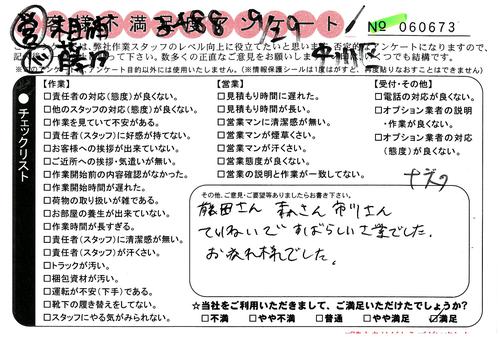 営 相浦 3488 9/29
作 藤田 平川区
お客様不満足度アンケート No 060673
このアンケートは、弊社作業スタッフのレベル向上に役立てたいと思います。否定的なアンケートになりますので、
数多くの正直なご意見をお願いします。
このアンケート目的以外には使用いたしません。(※情報保護シールは1度がすと、再度貼りなおすことはできません)
チェックリスト
【作業】
□責任者の対応(態度)が良くない。
□他のスタッフの対応(態度)が良くない。
□作業を見ていて不安がある。
□責任者(スタッフ)に好感が持てない。
□お客様への挨拶が出来ていない。
□ご近所への挨拶・気遣いが無い。
□作業開始前の内容確認がなかった。
□作業開始時間が遅れた。
□荷物の取り扱いが雑である。
□お部屋の養生が出来ていない。
□作業時間が長すぎる。
□責任者(スタッフ)に清潔感が無い。
□責任者(スタッフ)が汗くさい。
□トラックが汚い。
□梱包資材が汚い。
□運転が不安(下手)である。
□靴下の履き替えをしてない。
□スタッフにやる気がみられない。
【営業】
□見積もり時間に遅れた。
□見積もり時間が長い。
□営業マンに清潔感が無い。
□営業マンが煙草くさい。
□営業マンが汗くさい。
□営業態度が良くない。
□営業の説明と作業が一致してない。
【受付・その他】
□電話の対応が良くない。
□オプション業者の説明
・作業が良くない。
□オプション業者の対応
(態度)が良くない。
その他、ご意見・ご要望等ありましたらお書き下さい。
藤田さん 青木さん 市川さん
ていねいで すばらしい作業でした。
お疲れ様でした。
☆当社をご利用いただきまして、ご満足いただけたでしょうか?
□不満 □やや不満 □普通 □やや満足 ☑満足